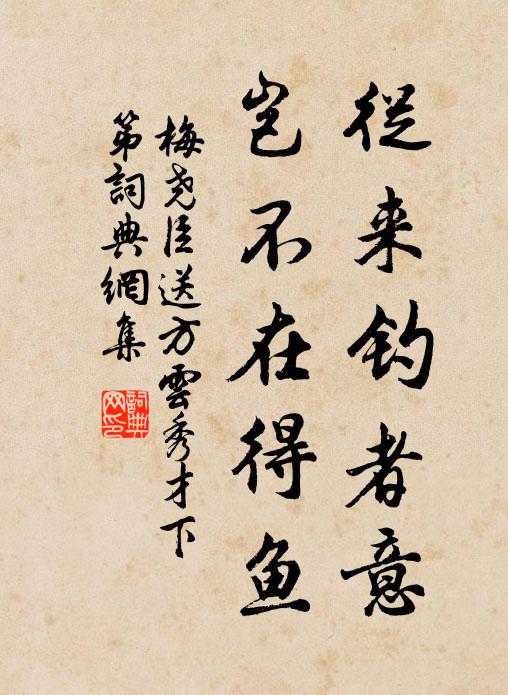 從来钓者意
岂不在得鱼
梅尧臣送方雲秀才下
第詞典網集
詞典
网印